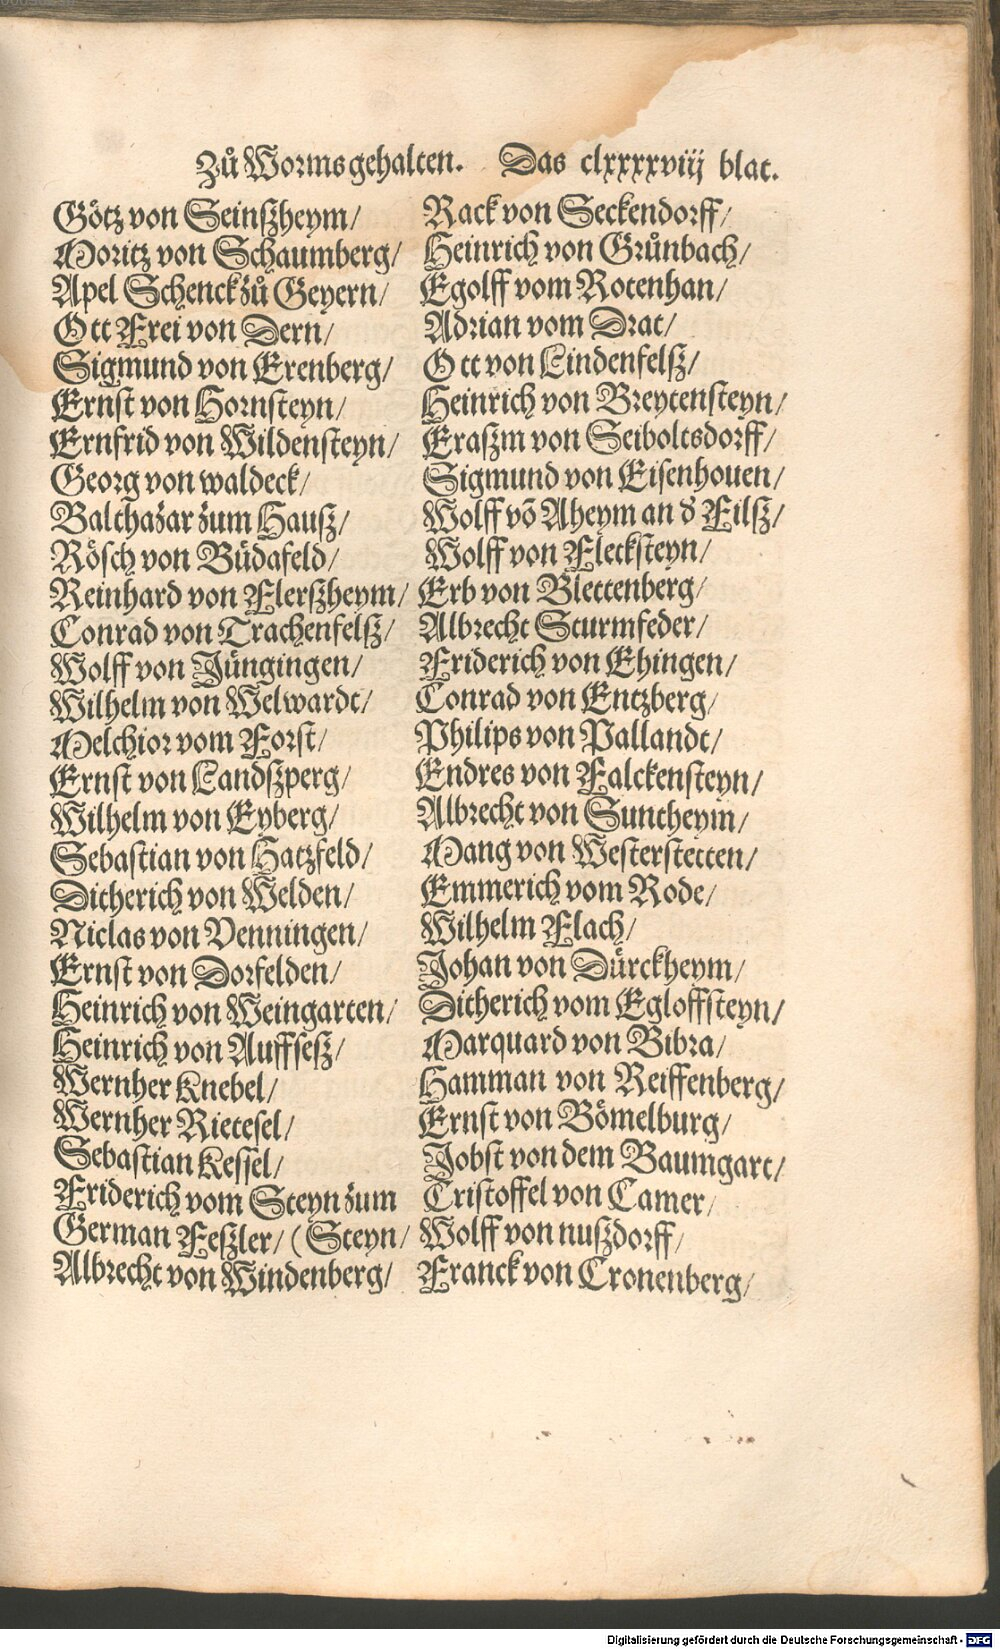 Zů Worms gehalten. Das clxxxxviij blat.
Götz von Seinßheym/
Moritz von Schaumberg/
Apel Schenck zů Geyern/
Ott Frei von Dern/
Sigmund von Erenberg/
Ernst von Hornsteyn/
Ernfrid von Wildensteyn/
Georg von waldeck/
Balthazar zum Hauß/
Rösch von Büdafeld/
Reinhard von Flerßheym/
Conrad von Trachenfelß/
Wolff von Jüngingen/
Wilhelm von Welwardt/
Melchior vom Forst/
Ernst von Landßperg/
Wilhelm von Eyberg/
Sebastian von Hatzfeld/
Ditherich von Welden/
Niclas von Venningen/
Ernst von Dorfelden/
Heinrich von Weingarten/
Heinrich von Auffseß/
Wernher Knebel/
Wernher Rietesel/
Sebastian Kessel/
Friderich vom Steyn zum
German Feßler/ (Steyn/
Albrecht von Windenberg/
Rack von Seckendorff/
Heinrich von Grůnbach/
Egolff vom Rotenhan/
Adrian vom Drat/
Ott von Lindenfelß/
Heinrich von Breytensteyn/
Eraßm von Seiboltsdorff/
Sigmund von Eisenhouen/
Wolff võ Aheym an d' Filß/
Wolff von Flecksteyn/
Erb von Blettenberg/
Albrecht Sturmfeder/
Friderich von Ehingen/
Conrad von Entzberg/
Philips von Pallandt/
Endres von Falckensteyn/
Albrecht von Suntheym/
Mang von Westerstetten/
Emmerich vom Rode/
Wilhelm Flach/
Johan von Dürckheym/
Ditherich vom Egloffsteyn/
Marquard von Bibra/
Hamman von Reiffenberg/
Ernst von Bömelburg/
Jobst von dem Baumgart/
Cristoffel von Camer/
Wolff von nußdorff/
Franck von Cronenberg/
Digitalisierung gefördert durch die Deutsche Forschungsgemeinschaft - DFG